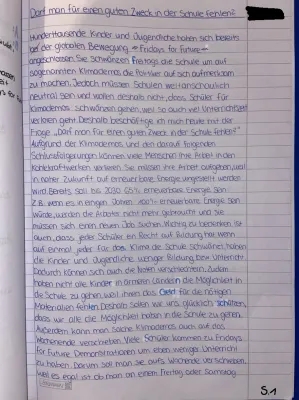 Darf man für einen guten Zweck in der Schule fehlen?
Hunderttausende Kinder und Jugendliche haben sich bereits
bei der globalen Bewegung "Fridays for Future"
angeschlossen. Sie schwänzen Freitags die Schule um auf
sogenannten Klimademos die Politiker auf sich aufmerksam
zu machen. Jedoch müssen Schulen weltanschaulich
neutral sein und wollen deshalb nicht, dass Schüler für
Klimademos schwänzen gehen, weil so auch viel Unterrichtszeit
verloren geht. Deshalb beschäftige ich mich heute mit der
Frage „Darf man für einen guten Zweck in der Schule fehlen?"
Aufgrund der Klimademos und den darauf folgenden
Schlussfolgerungen können viele Menschen ihre Arbeit in den
Kohlekraftwerken verlieren. Sie müssen ihre Arbeit aufgeben, weil
in naher Zukunft auf erneuerbare Energie umgestellt werden
wird. Bereits soll bis 2030 65% erneuerbare Energie sein.
Z.B. wenn es in einigen Jahren 100% erneuerbare Energie sein
würde, werden die Arbeiter nicht mehr gebraucht und sie
müssen sich einen neuen Job suchen. Wichtig zu bedenken ist
auch, dass jeder Schüler ein Recht auf Bildung hat. Wenn
auf einmal jeder für das Klima die Schule schwänzt, haben
die Kinder und Jugendliche weniger Bildung bzw. Unterricht.
Dadurch können sich auch die Noten verschlechtern. Zudem
haben nicht alle Kinder in ärmeren Ländern die Möglichkeit in
die Schule zu gehen, weil ihnen das Geld für die nötigen
Materialien fehlen. Deshalb sollen wir uns glücklich schätzen,
dass wir alle die Möglichkeit haben in die Schule zu gehen.
Außerdem kann man solche Klimademos auch auf das
Wochenende verschieben. Viele Schüler kommen zu Fridays
for Future Demonstrationen um eben weniger Unterricht
zu haben. Darum soll man sie aufs Wochenende verschieben,
weil es egal ist ob man an einem Freitag oder Samstag
S.1